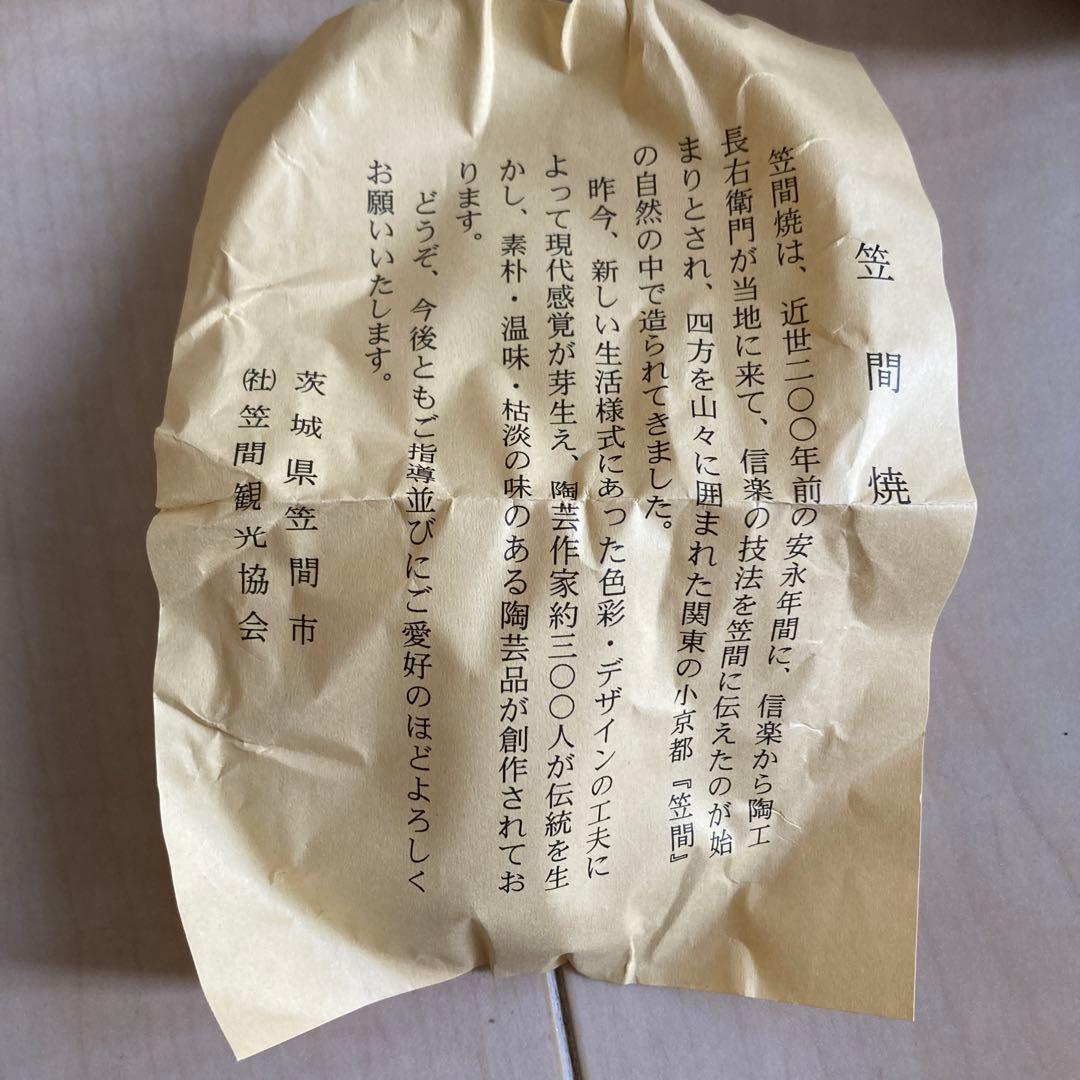 笠間焼
笠間焼は、近世二〇〇年前の安永年間に、信楽から陶工
長右衛門が当地に来て、信楽の技法を笠間に伝えたのが始
まりとされ、四方を山々に囲まれた関東の小京都『笠間』
の自然の中で造られてきました。
昨今、新しい生活様式にあった色彩・デザインの工夫に
よって現代感覚が芽生え、陶芸作家約三〇〇人が伝統を生
かし、素朴・温味・枯淡の味のある陶芸品が創作されてお
ります。
どうぞ、今後ともご指導並びにご愛好のほどよろしく
お願いいたします。
茨城県笠間市
㈳笠間観光協会